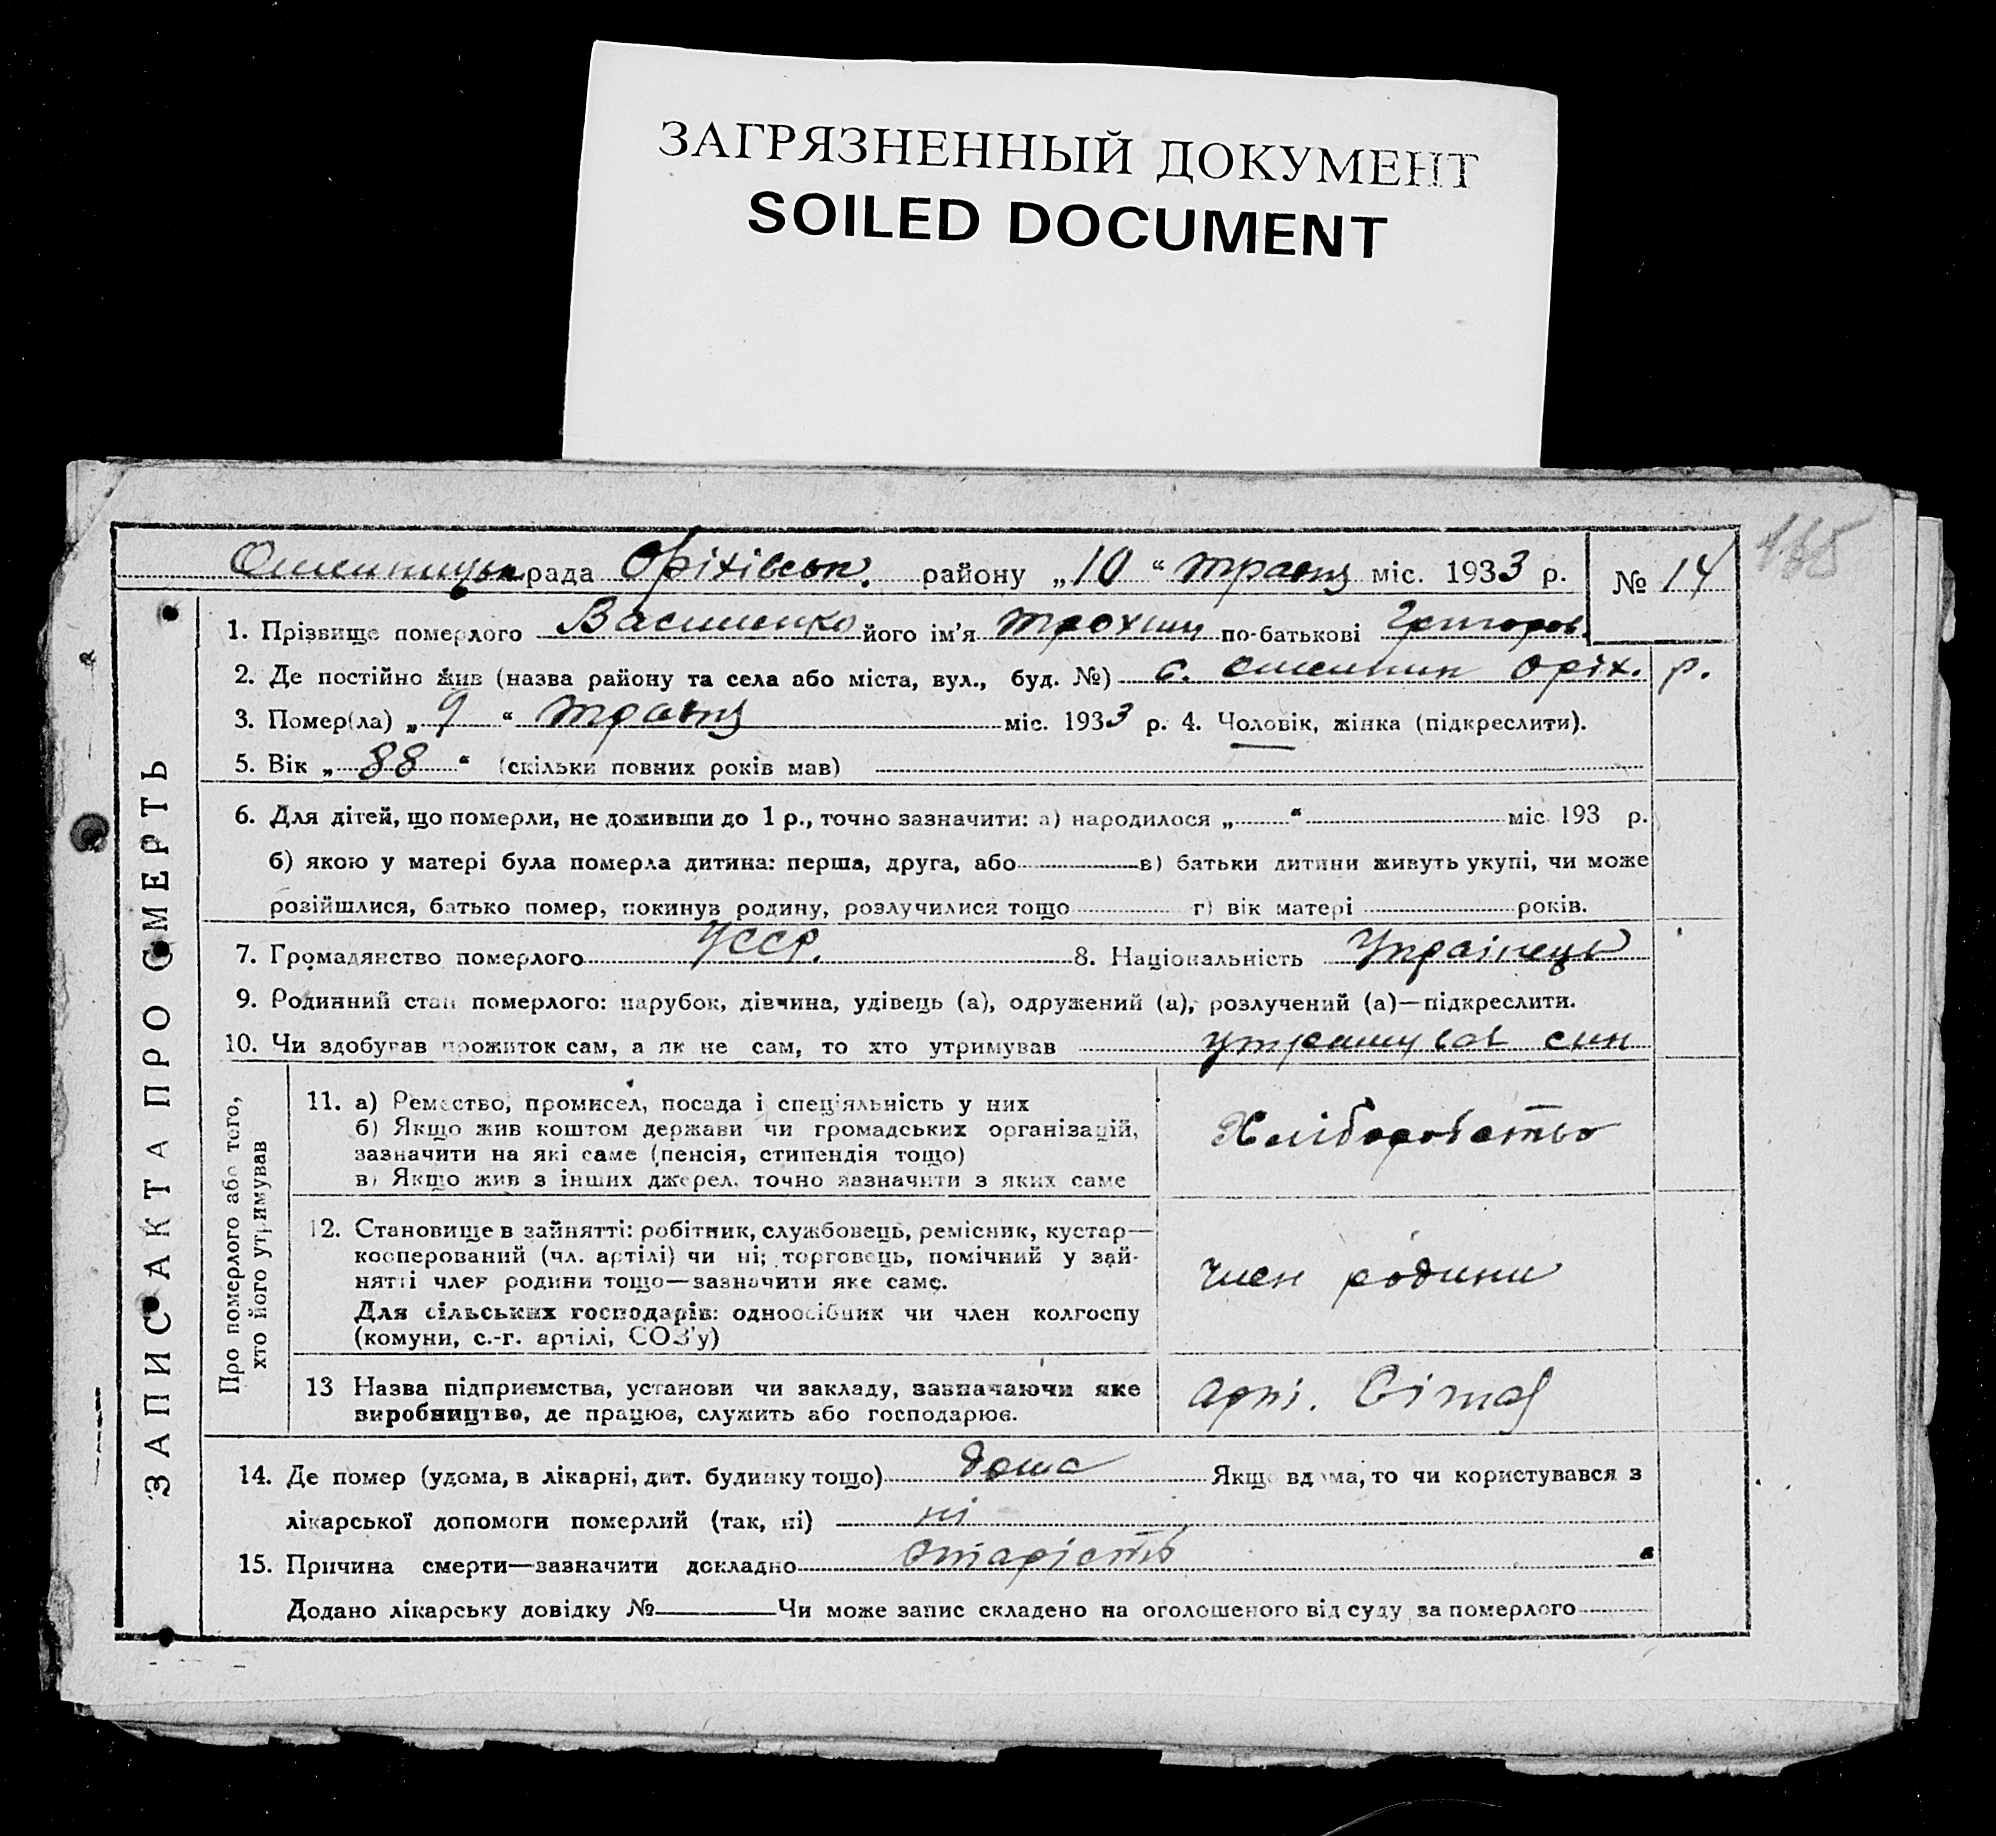 ЗАГРЯЗНЕННЫЙ ДОКУМЕНТ
SOILED DOCUMENT
165
рада Оріхівськ. району „10“ травня міс. 1933 р. № 14
1. Прізвище померлого Василенко його ім’я Трохим по-батькові Григоров.
2. Де постійно жив (назва району та села або міста, вул., буд. №) с. Оріх. р.
3. Помер(ла) „9“ травня міс. 1933 р. 4. Чоловік, жінка (підкреслити).
5. Вік „88“ (скільки повних років мав)
6. Для дітей, що померли, не доживши до 1 р., точно зазначити: а) народилося „ “ міс. 193 р.
б) якою у матері була померла дитина: перша, друга, або в) батьки дитини живуть укупі, чи може
розійшлися, батько помер, покинув родину, розлучилися тощо г) вік матері років.
7. Громадянство померлого УССР. 8. Національність Українець
9. Родинний стан померлого: парубок, дівчина, удівець (а), одружений (а), розлучений (а)—підкреслити.
10. Чи здобував прожиток сам, а як не сам, то хто утримував утримував син
ЗАПИС АКТА ПРО СМЕРТЬ
Про померлого або того,
хто його утримував
11. а) Ремество, промисел, посада і спеціяльність у них
б) Якщо жив коштом держави чи громадських організацій,
зазначити на які саме (пенсія, стипендія тощо)
в) Якщо жив з інших джерел, точно зазначити з яких саме
Хліборобство
12. Становище в зайнятті: робітник, службовець, ремісник, кустар—
кооперований (чл. артілі) чи ні; торговець, помічний у зай-
нятті член родини тощо—зазначити яке саме.
Для сільських господарів: одноосібник чи член колгоспу
(комуни, с.-г. артілі, СОЗ’у)
член родини
13 Назва підприємства, установи чи закладу, зазначаючи яке
виробництво, де працює, служить або господарює.
14. Де помер (удома, в лікарні, дит. будинку тощо) дома Якщо вдома, то чи користувався з
лікарської допомоги померлий (так, ні) ні
15. Причина смерти—зазначити докладно старість
Додано лікарську довідку № Чи може запис складено на оголошеного від суду за померлого